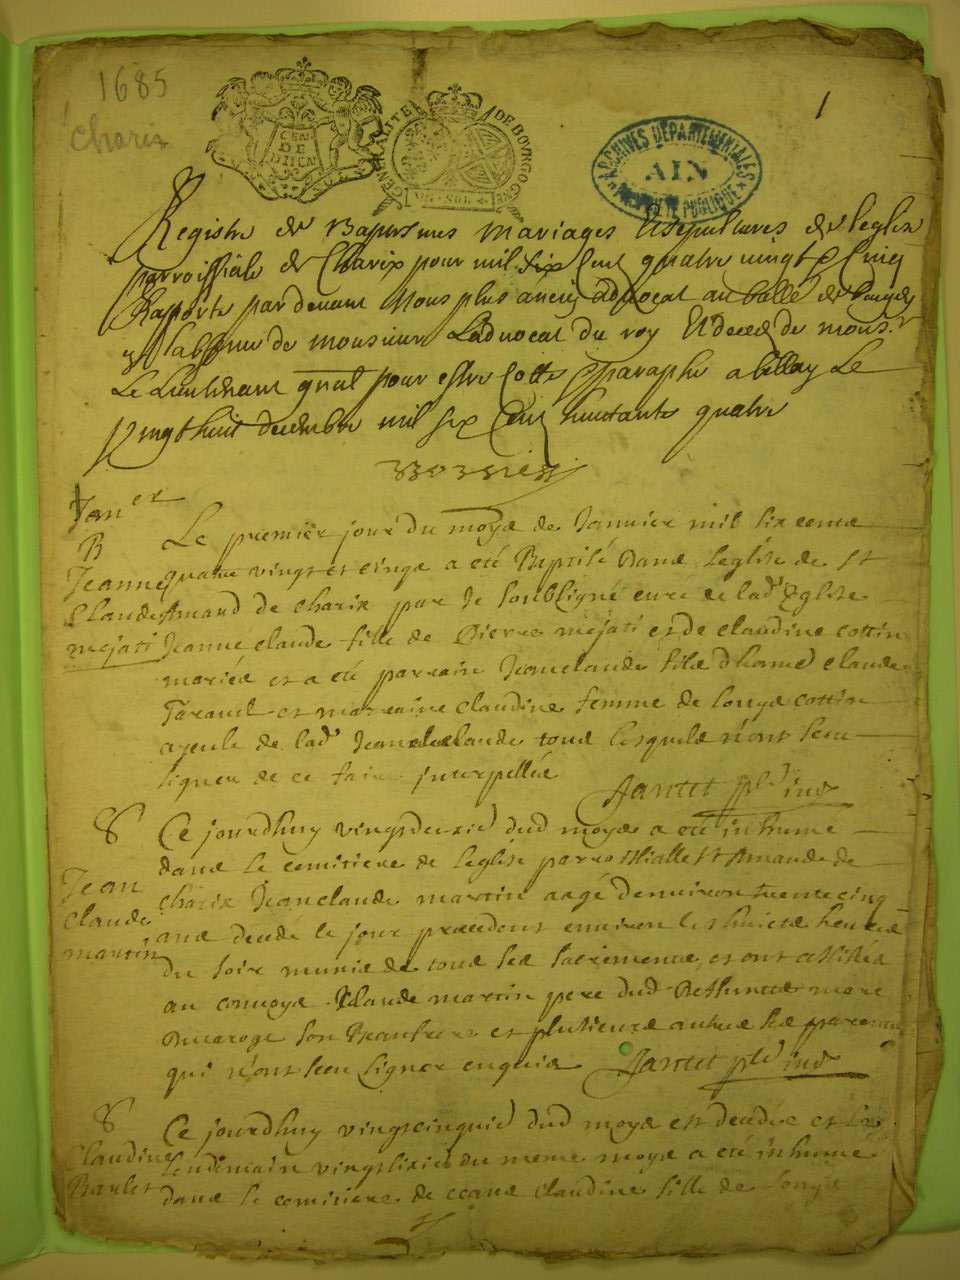 1685
Charix
1
CEN
DE
DIJON
GENERALITE DE BOVRGOGNE
VN SOL
ARCHIVES DÉPARTEMENTALES
AIN
PROPRIÉTÉ PUBLIQUE
Registre de Baptesmes mariages et sepultures de leglise
parroissiale de Charix pour mil six Cent quatre vingt & Cinq
Rapporte pardevant Nous plus ancien advocat au balle de
labsence de monsieur Ladvocat du roy Et deced de mons.r
Le Lieutenant gnal pour estre Cotte & paraphe a bellay Le
vingt huit decembre mil six Cent huictante quatre
Janer
B
Jeanne
Claude
mejati
Le premier jour du moys de Janvier mil six cents
quatre vingt et cinqs a été Baptisé Dans leglise de St
Amand de charix par Je soubsigné curé de lad Eglise
Jeanne claude fille de Pierre mejati et de claudine cottin
mariés et a été parrain Jeanclaude fils dhoned claude
et marraine claudine femme de Louys cottin
ayeule de lad Jeanne claude tous lesquels n'ont sceu
signer de ce faire interpellés
Jantet
S
Jean
claude
martin
Ce jourdhuy vingtdeuxie dud moys a été inhumé
dans le cemitiere de leglise parrossialle St Amand de
charix Jeanclaude martin aagé denviron trente cinq
ans decedé le jour precedent environ les huicts heures
du soir munis de tous ses sacrements et ont assistés
au convoys Claude martin pere dud Deffuncts marc
Ducaroge son Beaufrere et plusieurs autres ses parens
qui n'ont sceu signer enquis
Jantet
S
Claudine
Ce jourdhuy vingtcinquie dud moys est decedée et le
lendemain vingtsixie du meme moys a été inhumé
dans le cemitiere de ceans claudine fille de Louys